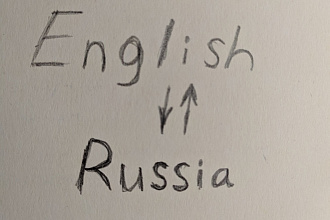 English
Russia